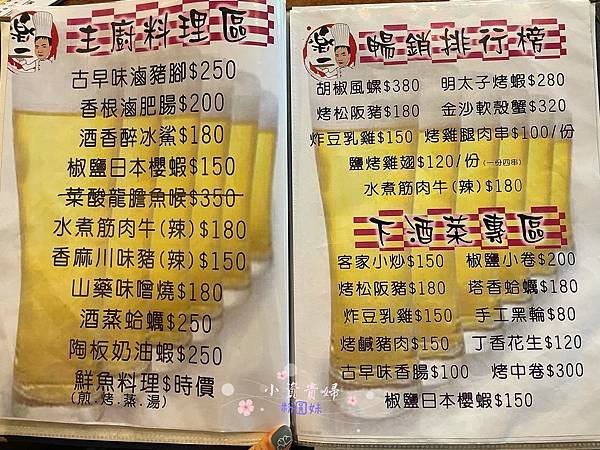 主廚料理區
古早味滷豬腳$250
香根滷肥腸$200
酒香醉冰鯊$180
椒鹽日本櫻蝦$150
菜酸龍膽魚喉$350
水煮筋肉牛(辣)$180
香麻川味豬(辣)$150
山藥味噌燒$180
酒蒸蛤蠣$250
陶板奶油蝦$250
鮮魚料理$時價
(煎.烤.蒸.湯)
暢銷排行榜
胡椒風螺$380 明太子烤蝦$280
烤松阪豬$180 金沙軟殼蟹$320
炸豆乳雞$150 烤雞腿肉串$100/份
鹽烤雞翅$120/份(一份四串)
水煮筋肉牛(辣)$180
下酒菜專區
客家小炒$150 椒鹽小卷$200
烤松阪豬$180 塔香蛤蠣$180
炸豆乳雞$150 手工黑輪$80
烤鹹豬肉$150 丁香花生$120
古早味香腸$100 烤中卷$300
椒鹽日本櫻蝦$150
小資貴婦
粉圓妹